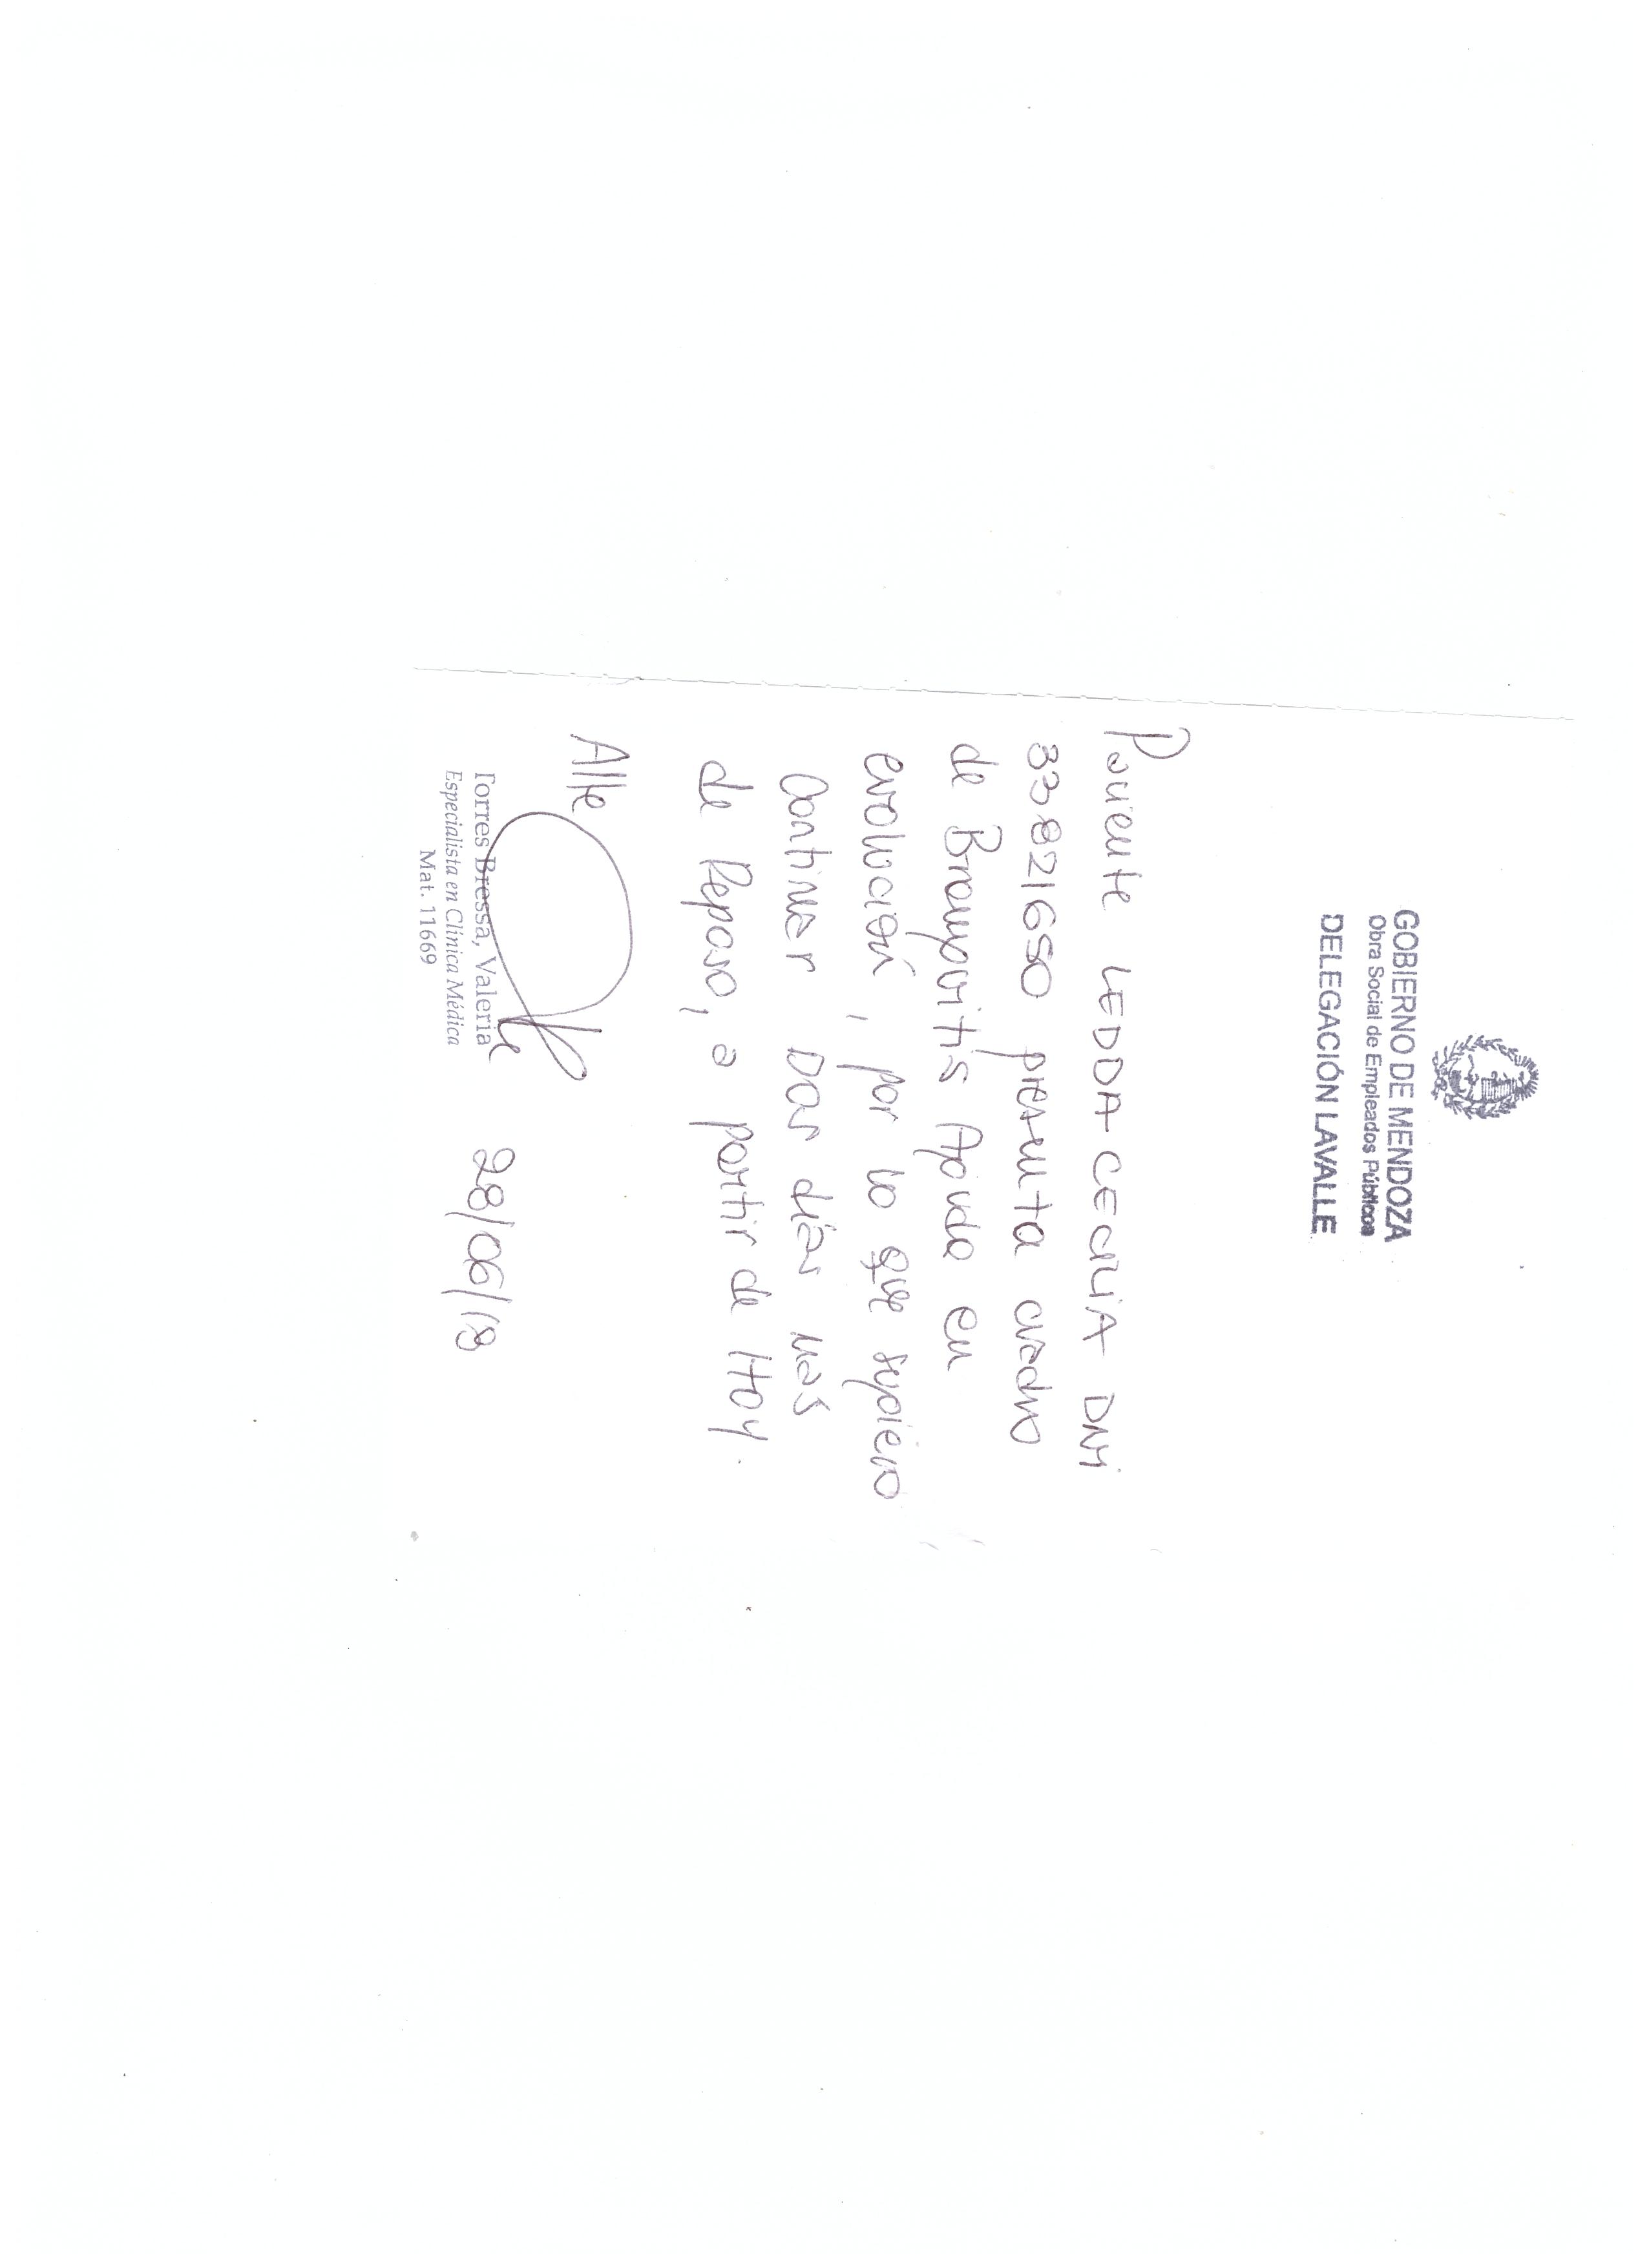 GOBIERNO DE MENDOZA
Obra Social de Empleados Públicos
DELEGACIÓN LAVALLE
Paciente LEDDA CECILIA DNI
33821650 presenta cuadro
de Broncoitis Aguda en
evolución, por lo que sugiero
Continuar Dos días más
de Reposo, a partir de Hoy.
Atte
Torres Bressa, Valeria
Especialista en Clínica Médica
Mat. 11669
28/06/19